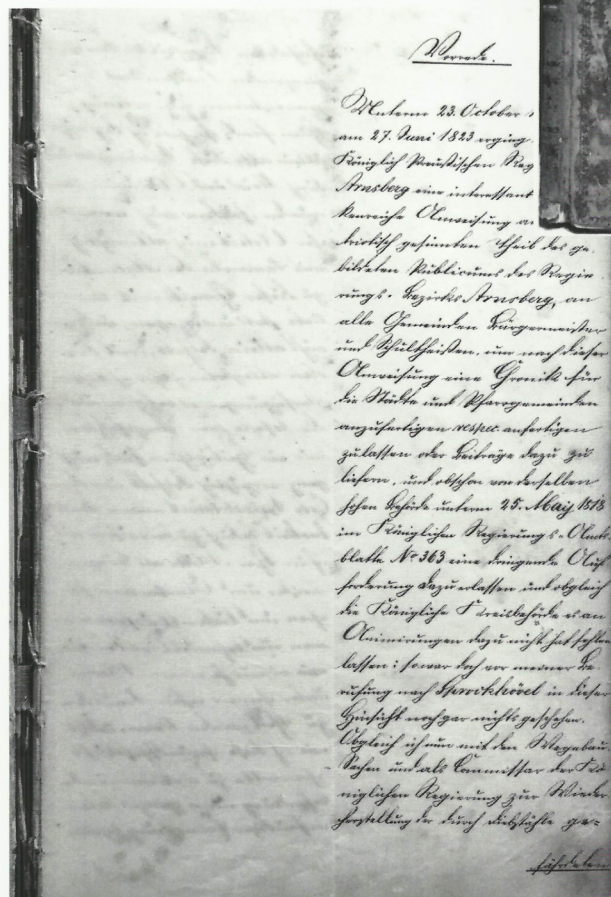 Vorrede.
Unterm 23. October
am 27. Juni 1823 erging
Königlich Preußischen Reg
Arnsberg eine interessant
kenreiche Anweisung an
triotisch gesinnten Theil des ge-
bildeten Publicums des Regie
rungs-Bezirks Arnsberg, an
alle Gemeinden Bürgermeister
und Schultheißen, um nach dieser
Anweisung eine Chronik für
die Städte und Pfarrgemeinden
anzufertigen respec. anfertigen
zu lassen oder Beiträge dazu zu
liefern, und obschon von derselben
hohen Behörde unterm 25. May 1818
im Königlichen Regierungs-Amts-
blatte No 363 eine dringende Auf
forderung dazu erlassen und obgleich
die Königliche Kreisbehörde es an
Animirungen dazu nicht hat fehlen
lassen; so war doch vor meiner Be-
rufung nach Sprockhövel in dieser
Hinsicht noch gar nichts geschehen.
Obgleich ich nun mit den Wegebau
Sachen und als Commissar der Kö
niglichen Regierung zur Wieder
herstellung der durch Diebstähle ge=
fährdeten